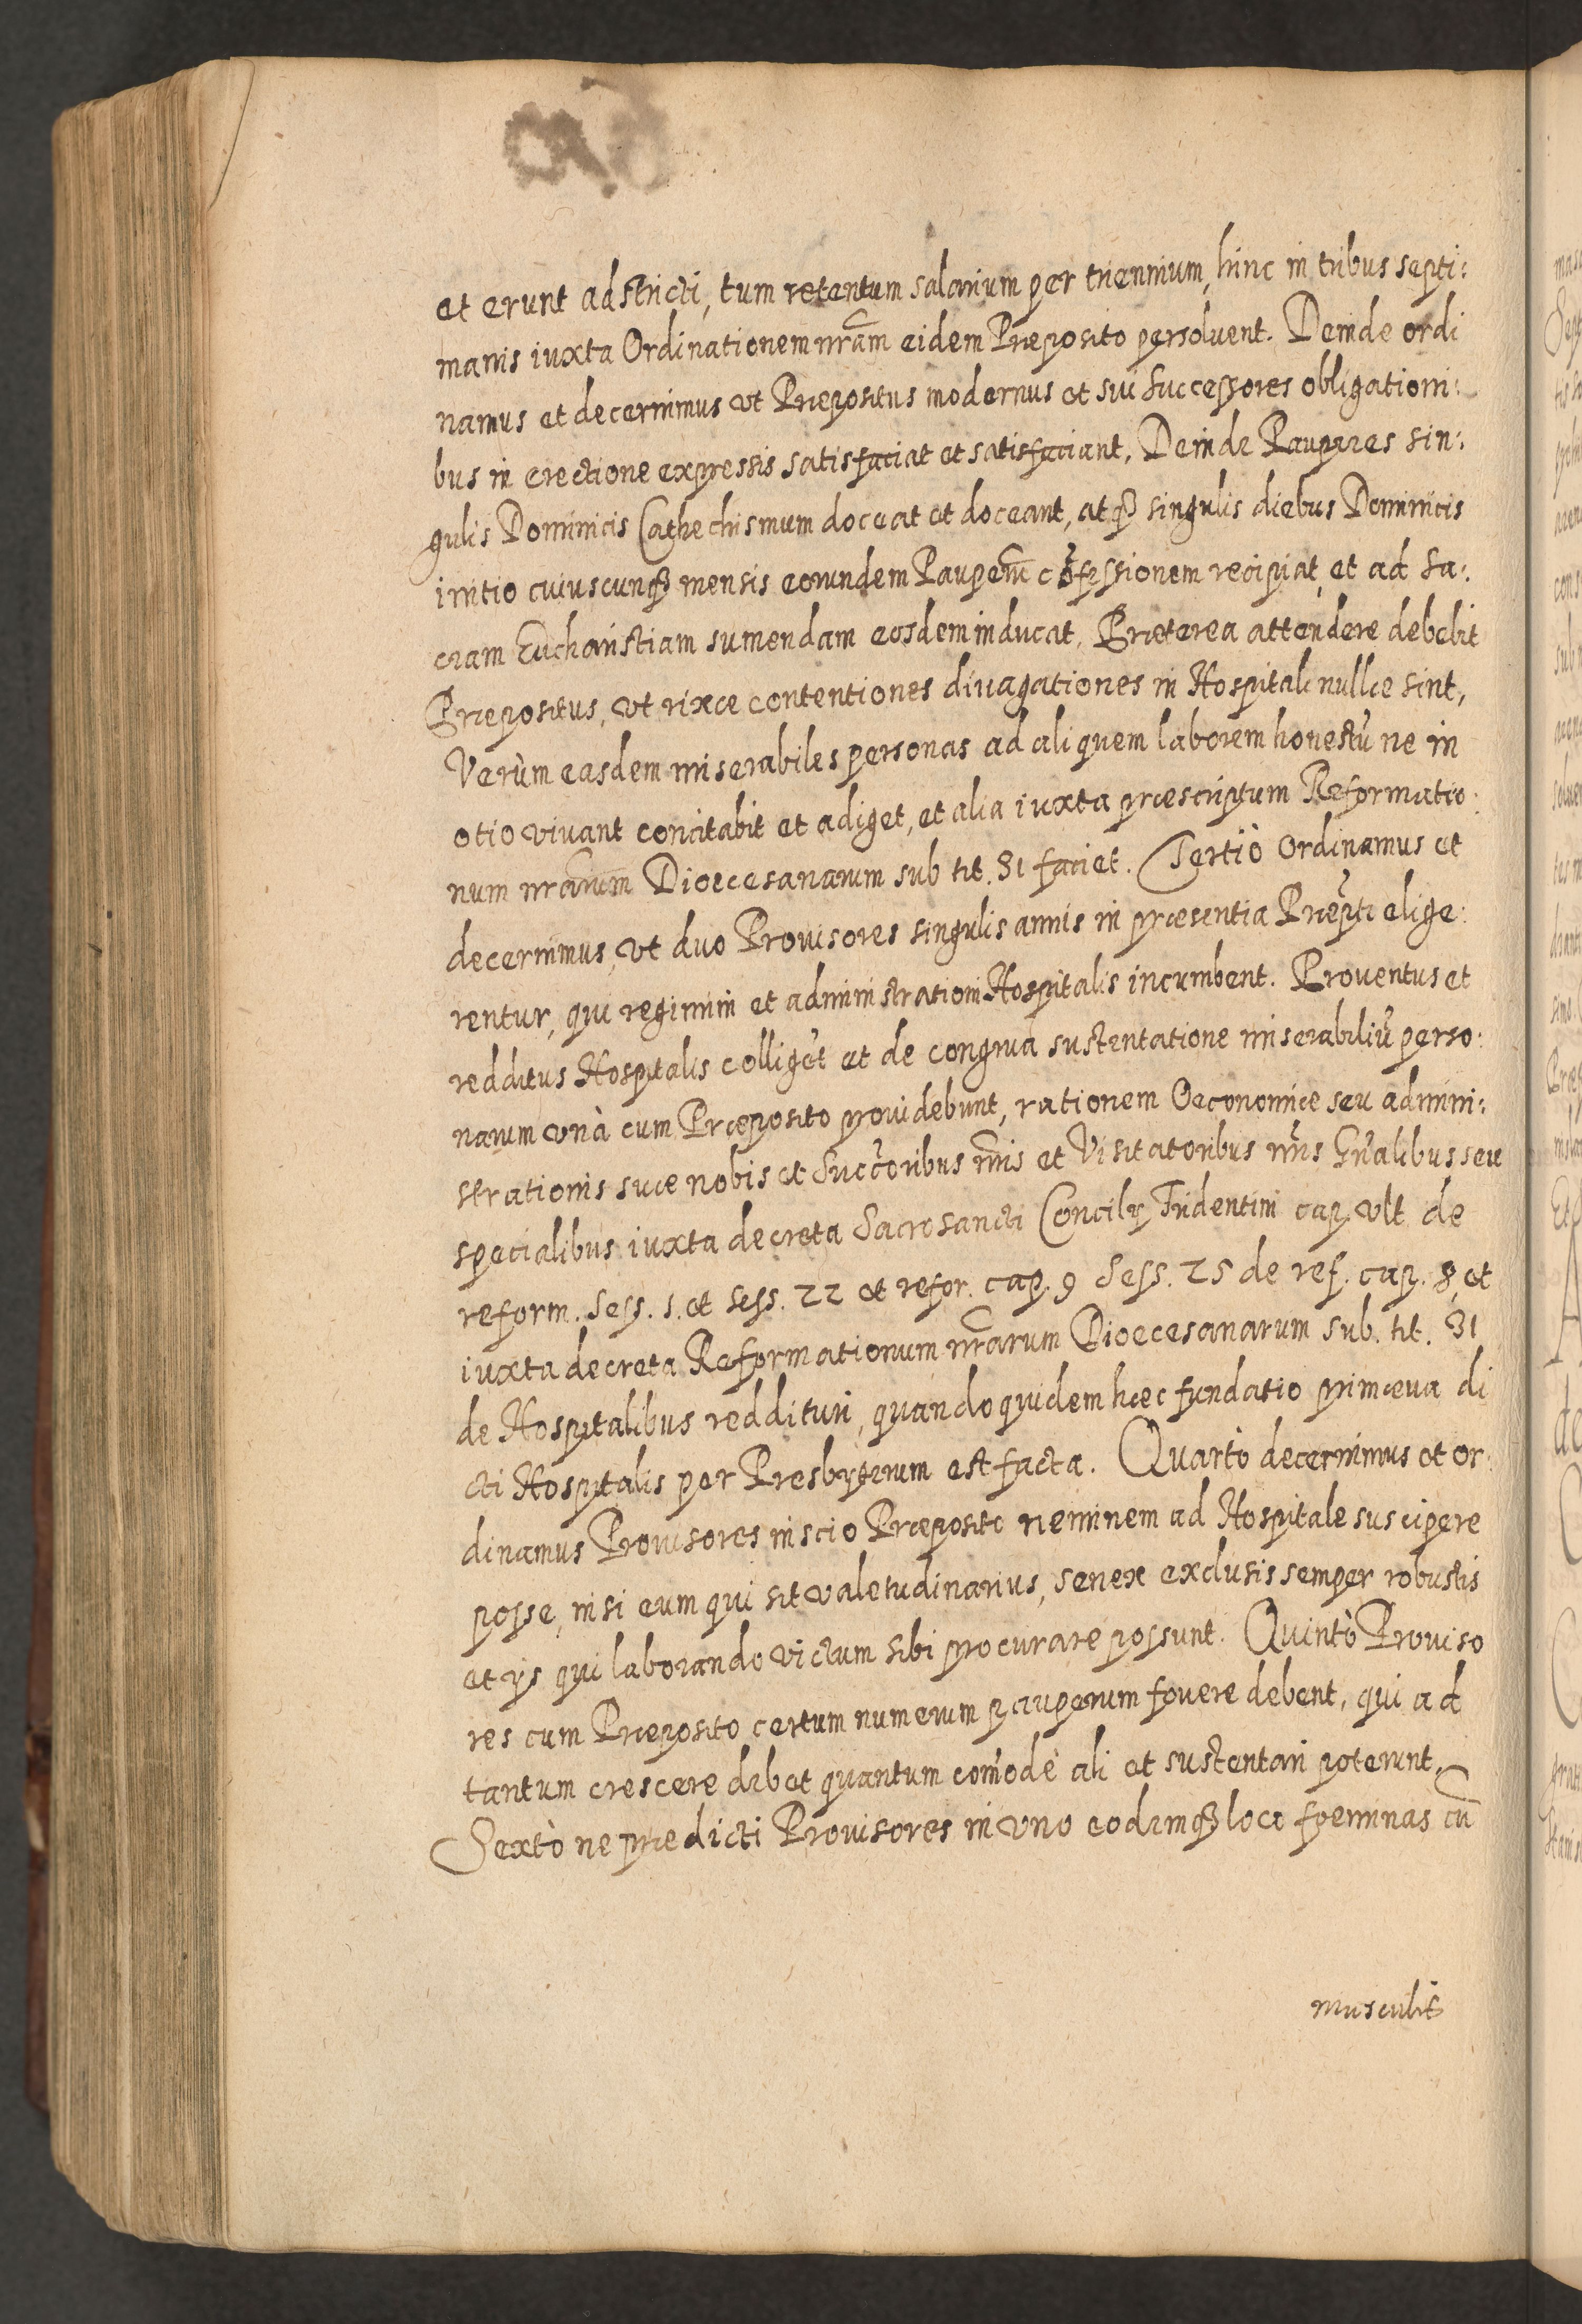 et erunt adstricti, tum retentum salarium per triennium, hinc in tribus septi:
manis iuxta Ordinationem nr̃am eidem Præposito persoluent. Deinde ordi
namus et decernimus vt Præpositus modernus et sui Successores obligationi:
bus in erectione expressis satisfaciat et satisfaciant. Deinde Pauperes sin:
gulis Dominicis Cathechismum doceat et doceant, atq3 singulis diebus Dominicis
initio cuiuscunq3 mensis eorundem Pauperũ cõfessionem recipiat, et ad Sa:
cram Eucharistiam sumendam eosdem inducat. Præterea attendere debebit
Præpositus, vt rixæ contentiones diuagationes in Hospitali nullæ sint,
Verùm easdem miserabiles personas ad aliquem laborem honestũ ne in
otio viuant concitabit et adiget, et alia iuxta præscriptum Reformatio:
num nr̃arum Dioecesanarum sub tit. 31 faciet. Tertiò Ordinamus et
decernimus, vt duo Prouisores singulis annis in præsentia Præpti elige:
rentur, qui regimini et administrationi Hospitalis incumbent. Prouentus et
redditus Hospitalis colligẽt et de congrua sustentatione miserabiliũ perso:
narum vnà cum Præposito prouidebunt, rationem Oeconomiæ seu admini:
strationis suæ nobis et Succ̃oribus nr̃is et Visitatoribus nr̃is Gñalibus seu
specialibus iuxta decreta Sacrosancti Concilÿ Tridentini cap. vlt de
reform. Sess. 1. et sess. 22 et refor. cap. 9 Sess. 25 de ref. cap. 8, et
iuxta decreta Reformationum nr̃arum Dioecesanarum sub. tit. 31
de Hospitalibus reddituri, quandoquidem hæc fundatio primæua di
cti Hospitalis per Presbyterum est facta. Quartò decernimus et or:
dinamus Prouisores inscio Præposito neminem ad Hospitale suscipere
posse, nisi eum qui sit valetudinarius, senex exclusis semper robustis
et ijs qui laborando victum sibi procurare possunt. Quintò Prouiso
res cum Præposito certum numerum pauperum fouere debent, qui ad
tantum crescere debet quantum com̃odè ali et sustentari poterunt.
Sextò ne prædicti Prouisores in vno eodemq3 loco foeminas cũ
musculis